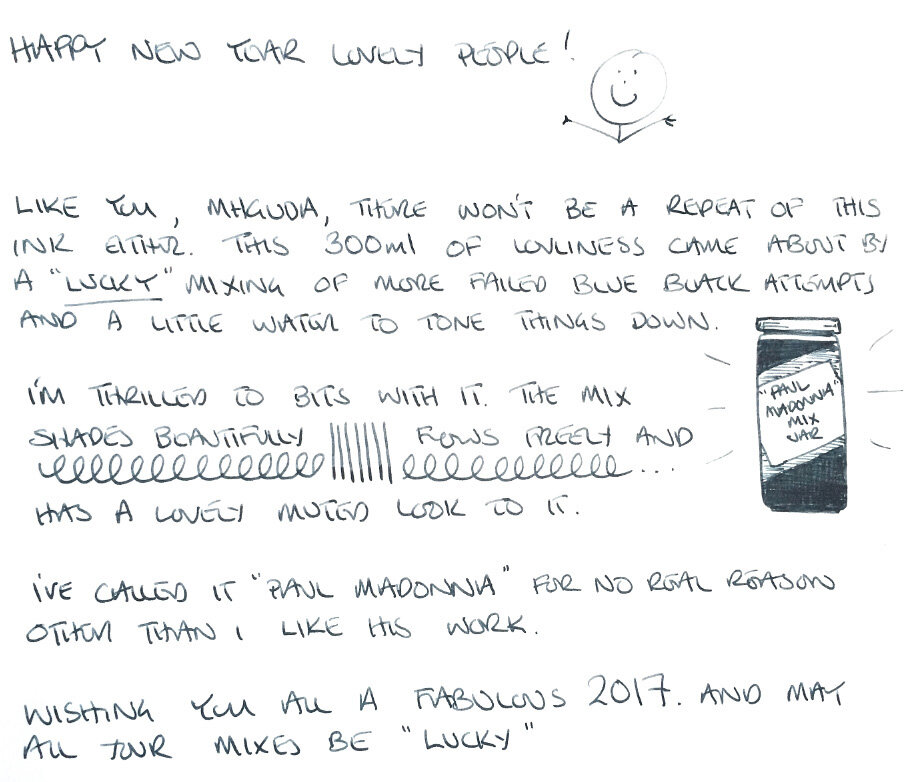 HAPPY NEW YEAR LOVELY PEOPLE!
LIKE YOU, MHGUDA, THERE WON'T BE A REPEAT OF THIS
INK EITHER. THIS 300ml OF LOVLINESS CAME ABOUT BY
A "LUCKY" MIXING OF MORE FAILED BLUE BLACK ATTEMPTS
AND A LITTLE WATER TO TONE THINGS DOWN.
"PAUL
MADONNA"
MIX
JAR
I'M THRILLED TO BITS WITH IT. THE MIX
SHADES BEAUTIFULLY FLOWS FREELY AND
HAS A LOVELY MUTED LOOK TO IT.
I'VE CALLED IT "PAUL MADONNA" FOR NO REAL REASON
OTHER THAN I LIKE HIS WORK.
WISHING YOU ALL A FABULOUS 2017. AND MAY
ALL YOUR MIXES BE "LUCKY"